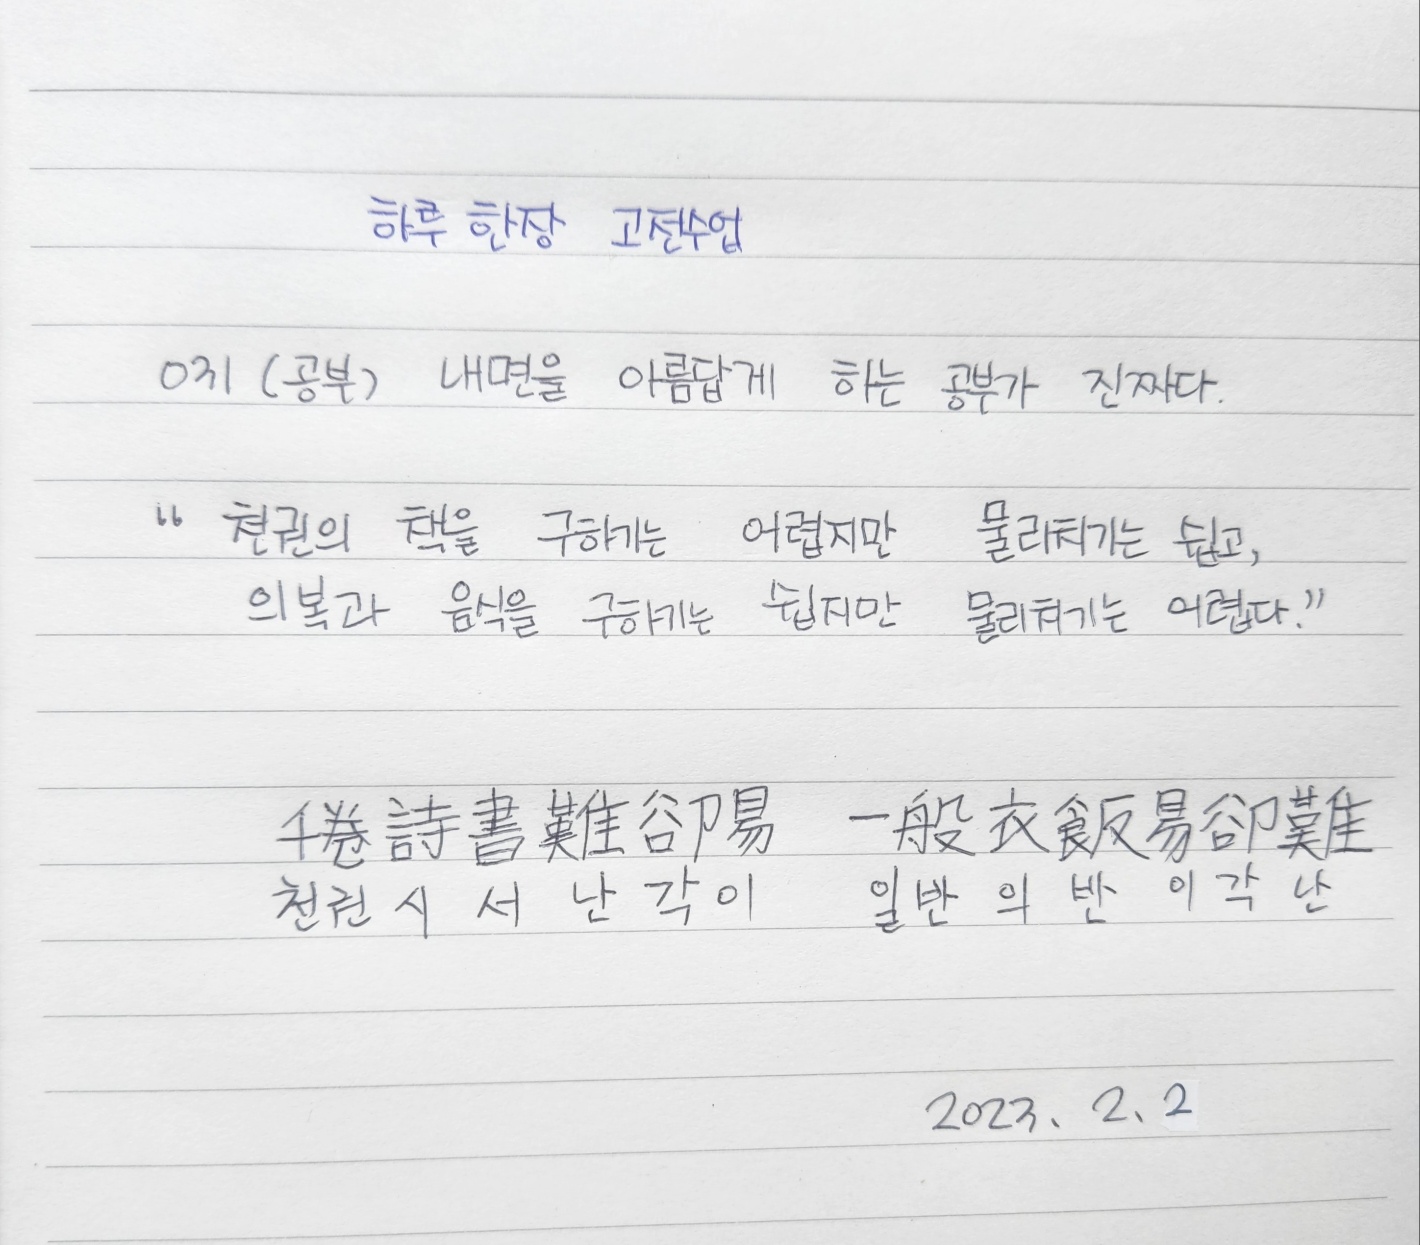 하루 한장 고전수업
031 (공부) 내면을 아름답게 하는 공부가 진짜다.
“ 천권의 책을 구하기는 어렵지만 물리치기는 쉽고,
의복과 음식을 구하기는 쉽지만 물리쳐기는 어렵다.”
千卷詩書難卻易 一般衣飯易卻難
천권 시 서 난 각 이 일반 의 반 이 각 난
2023. 2. 2